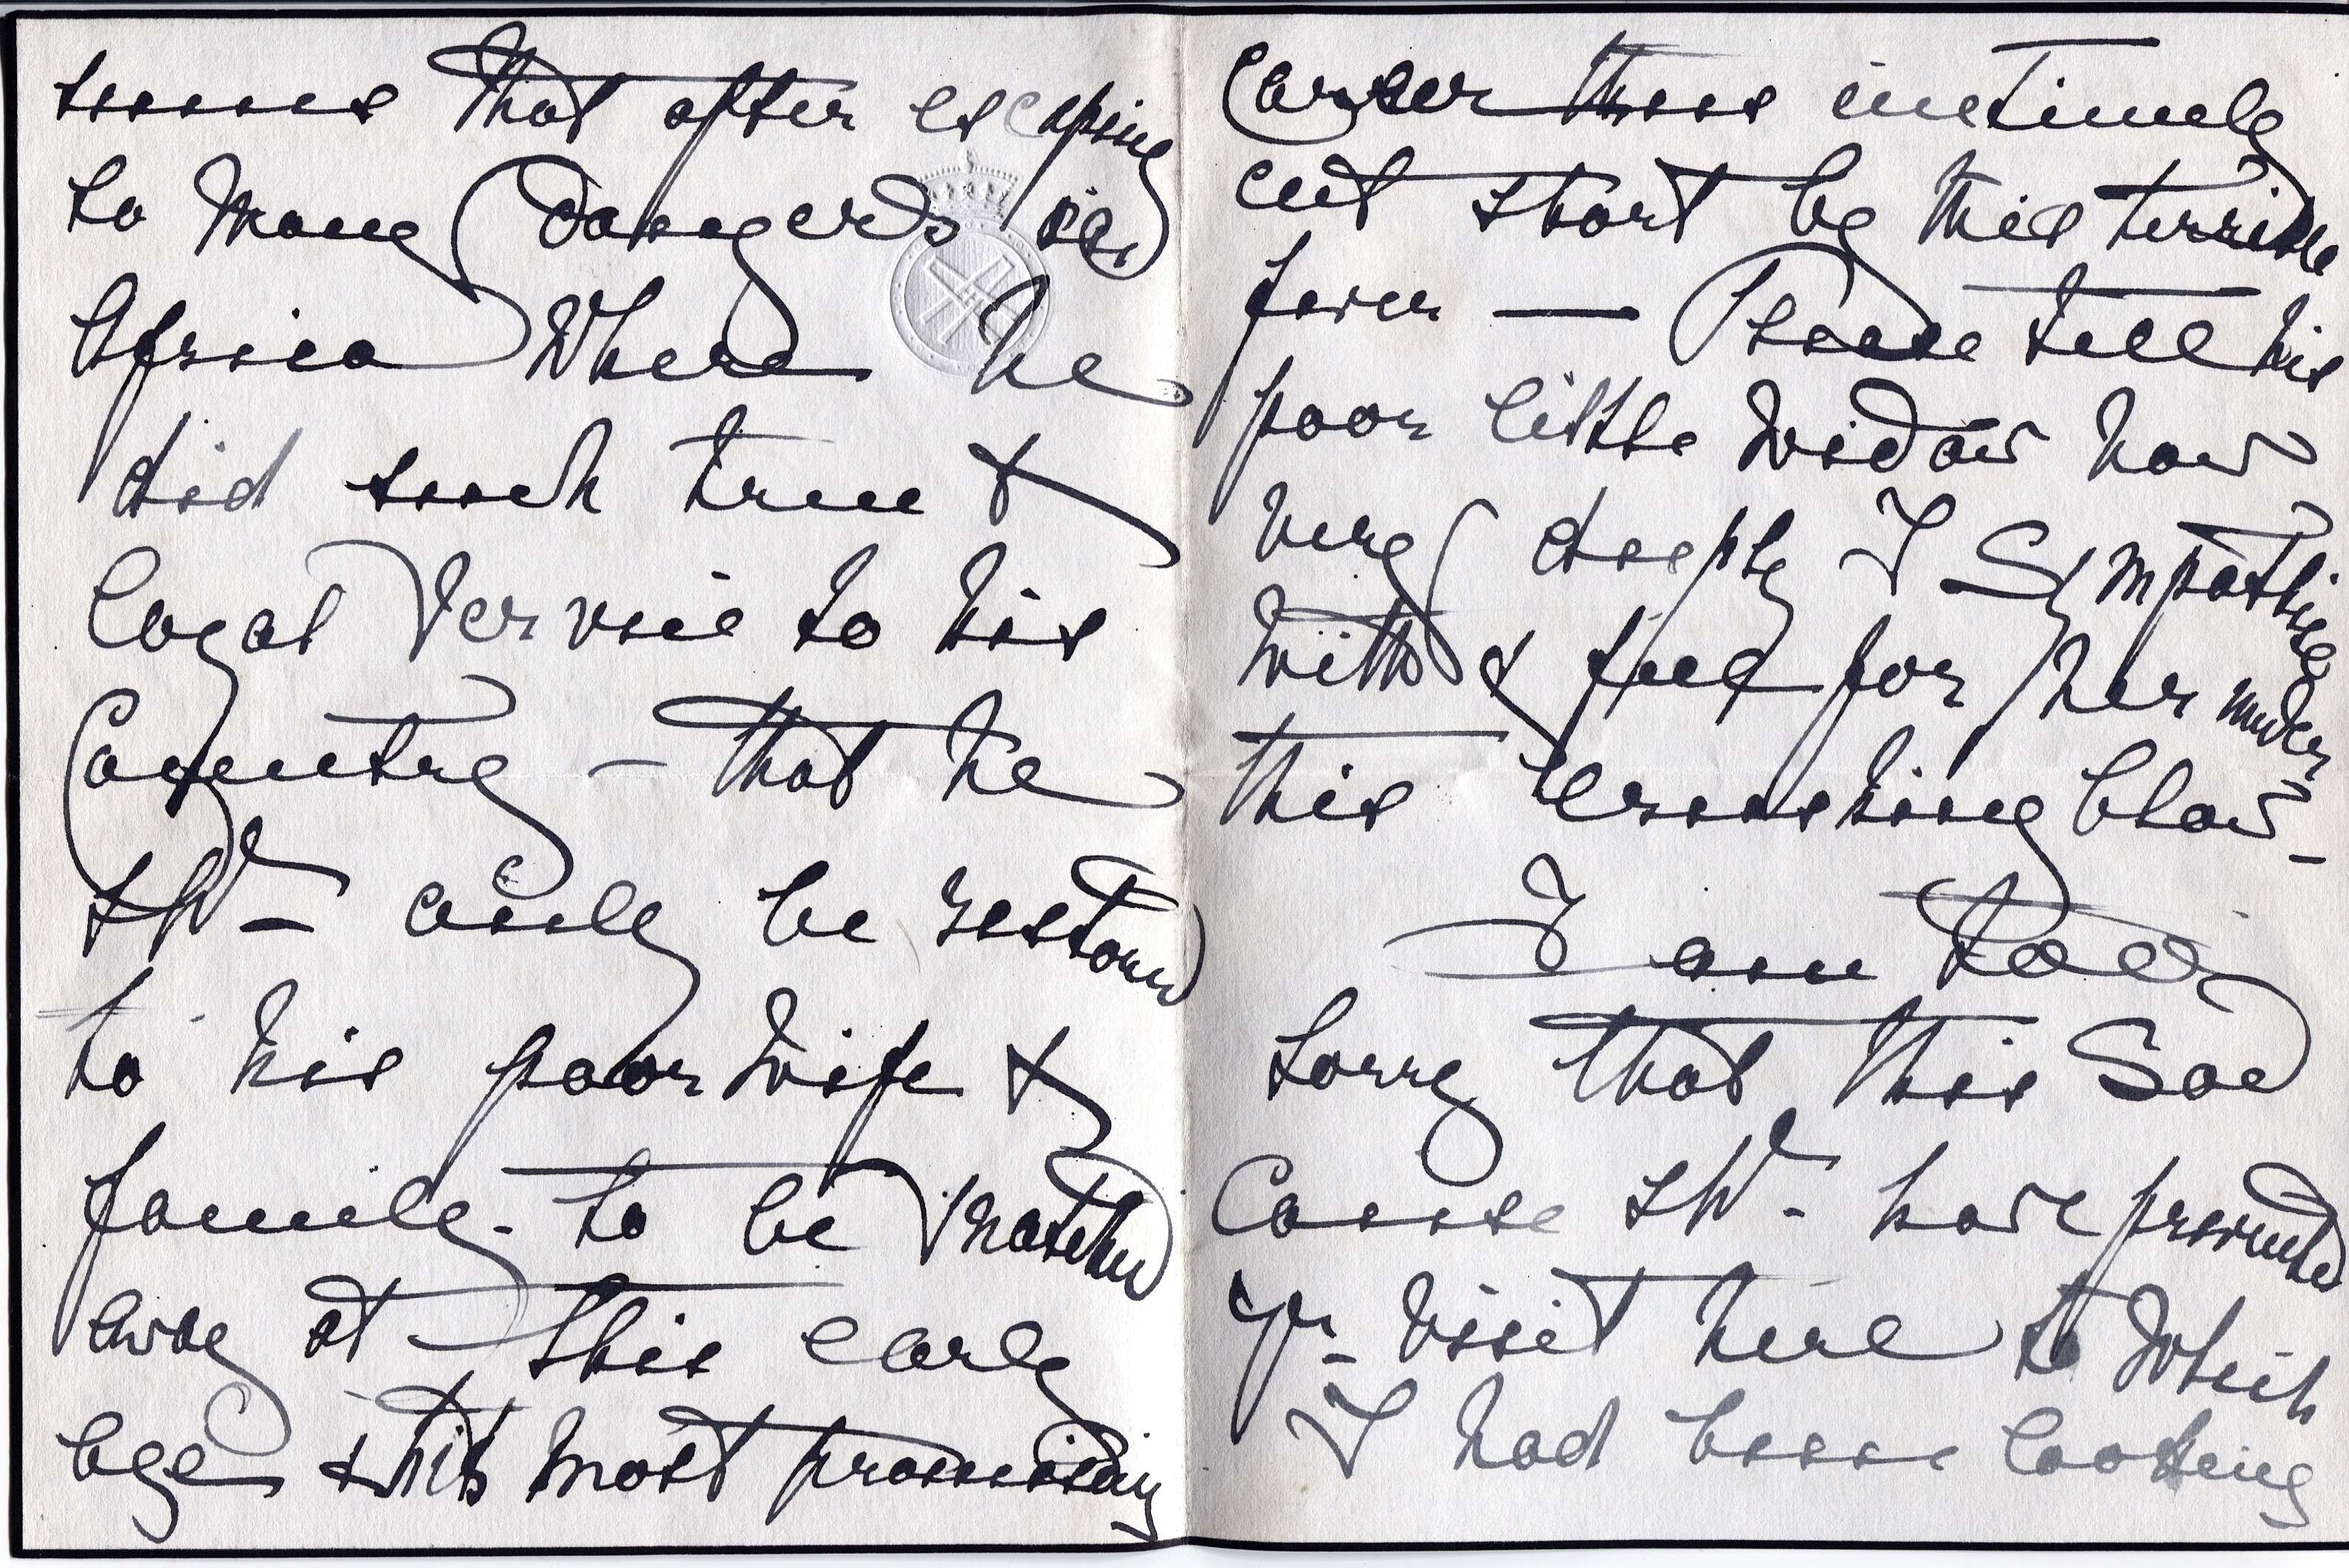 seems that after escaping
so many dangers in
Africa where he
did such true &
loyal service to his
Country – that he
shd– only be restored
to his poor wife &
family – to be snatched
away at this early
age & this most promising
Career thus untimely
cut short by this terrible
fever — Please tell his
poor little widow how
very deeply I sympathise
with & feel for her under
this crushing blow –
I am too
sorry that this sad
Cause shd– have prevented
yr– visit here to which
I had been looking